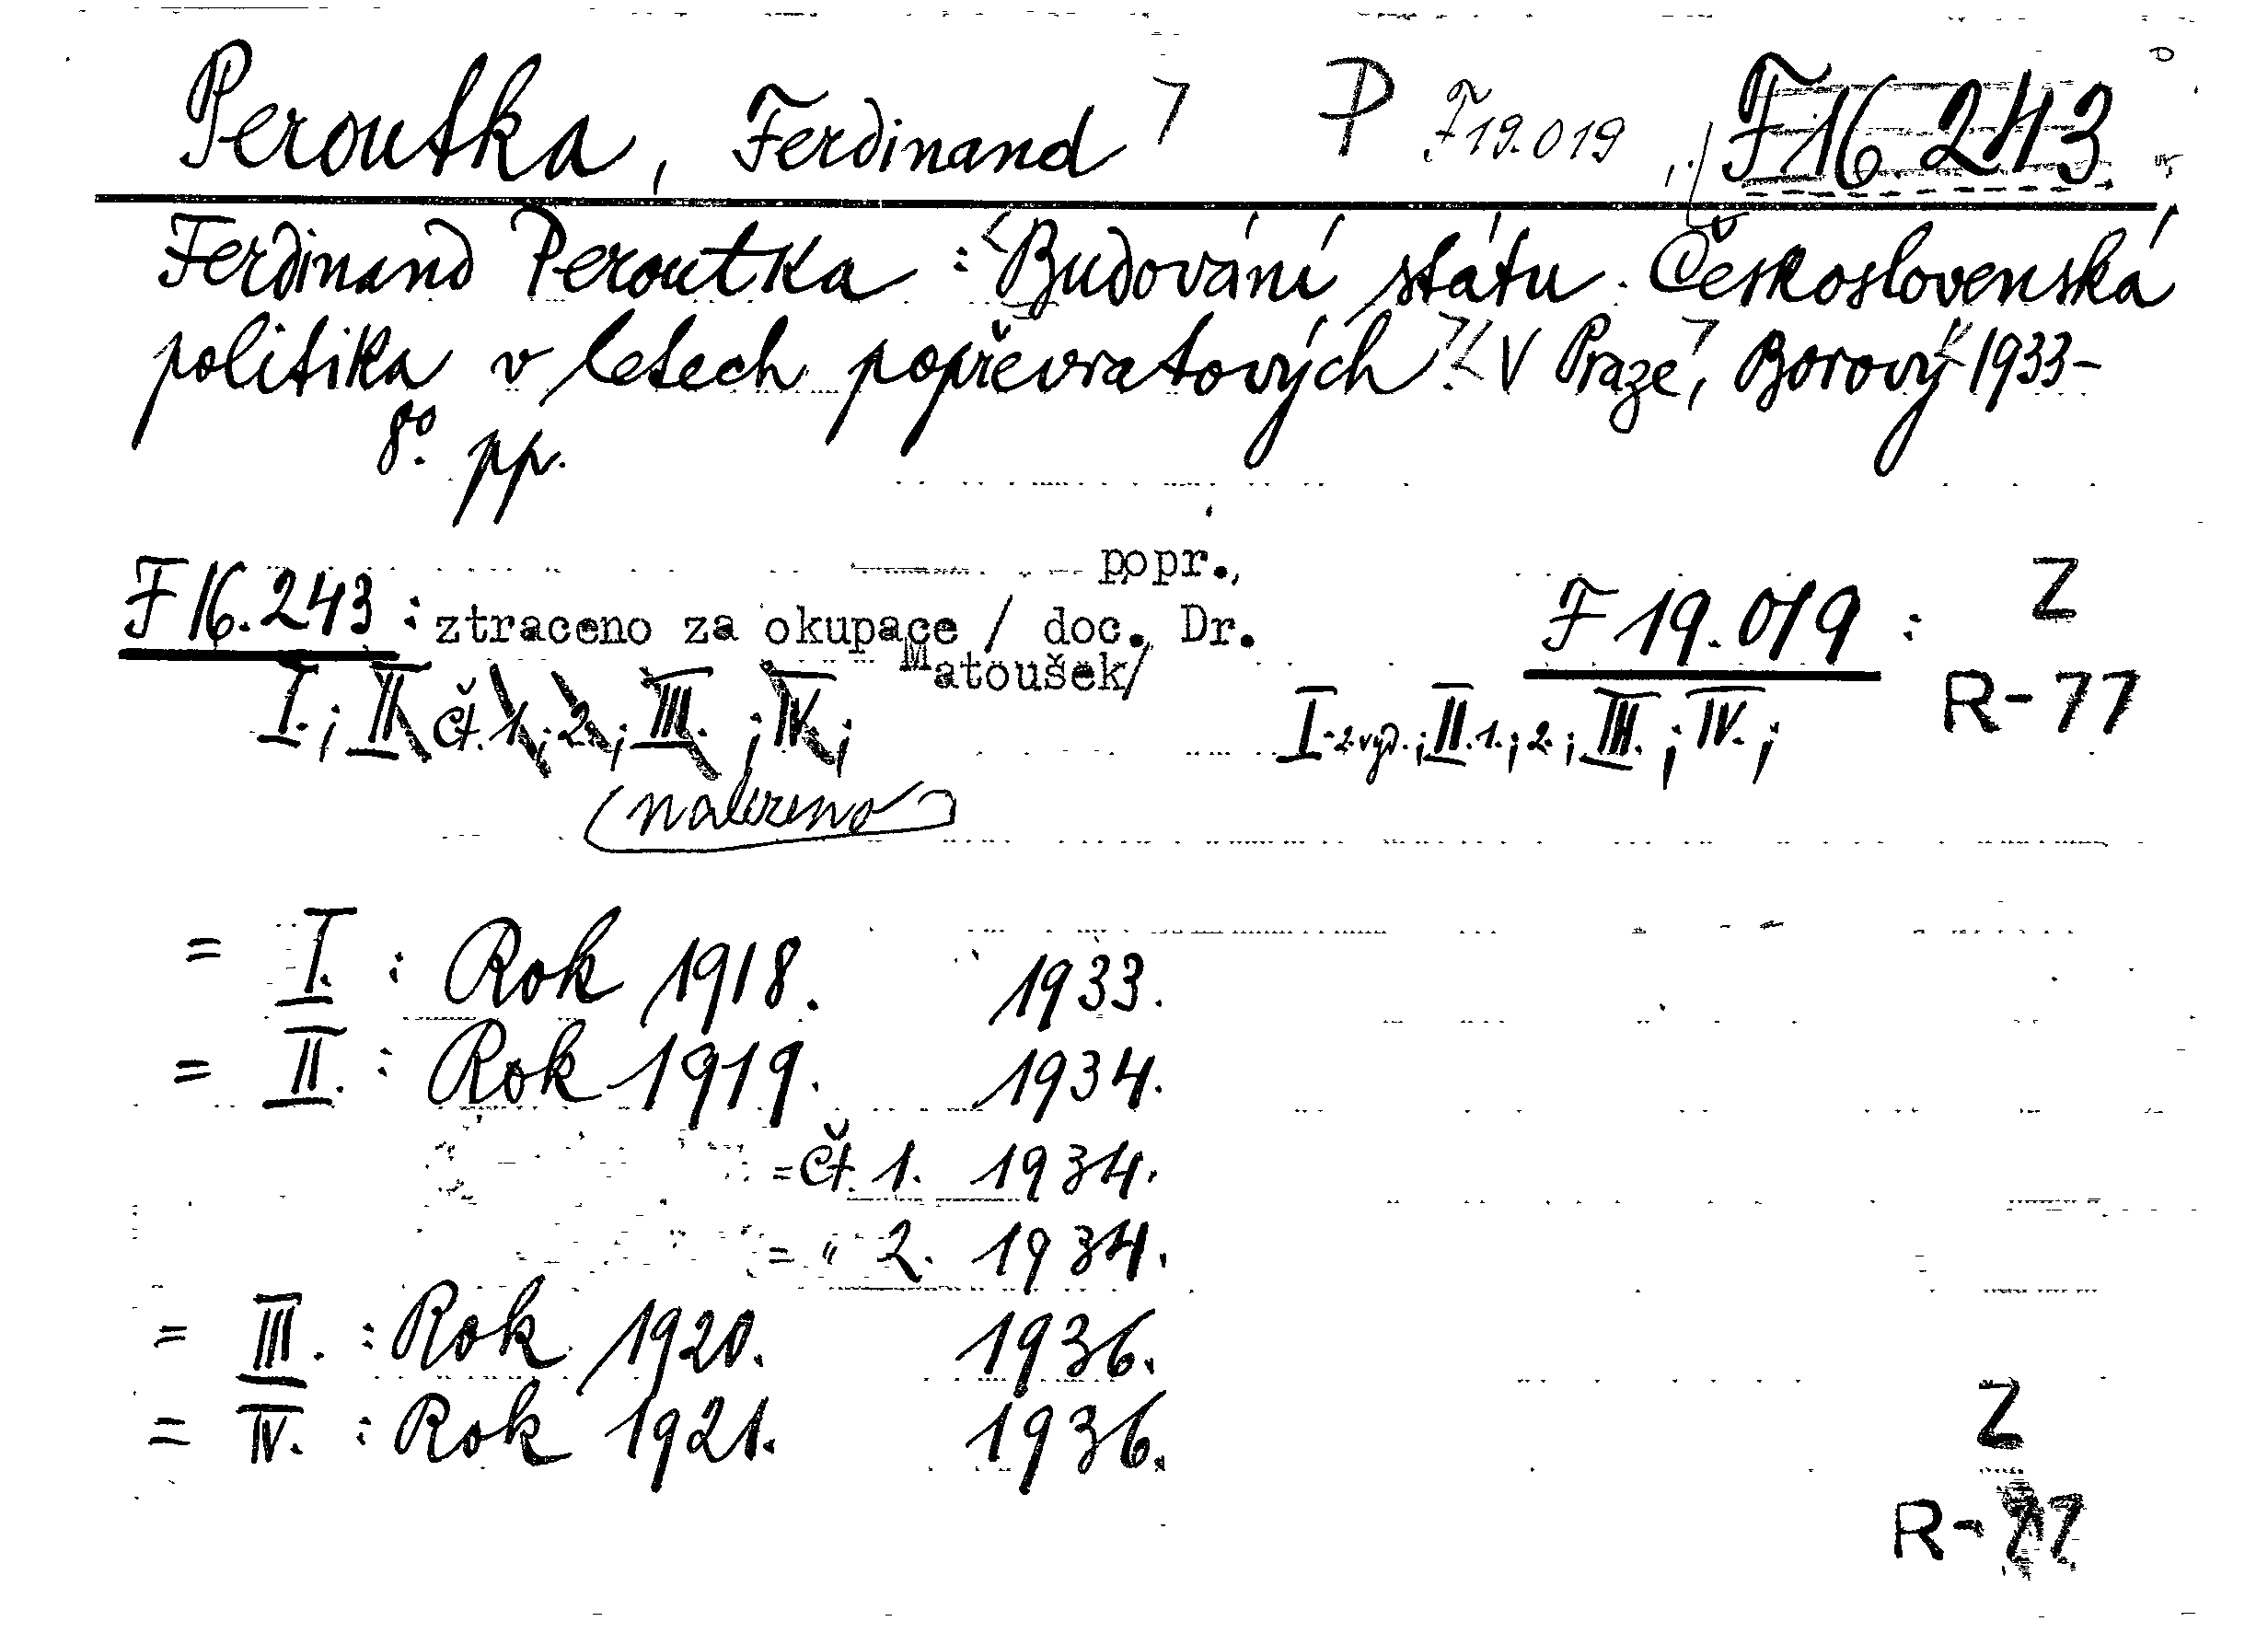 Peroutka, Ferdinand P F 19.019, F 16.243
Ferdinand Peroutka : Budování státu. Československá
politika v letech popřevratových. V Praze, Borový 1933-
8°. pp.
popr.,
F 16.243 : ztraceno za okupace / doc. Dr.
Matoušek/
I.; II čt. 1.; 2.; III. ; IV.;
F 19.019 : Z
I-2.vyd.; II.1.; 2.; III. ; IV. ; R-77
= I. : Rok 1918. 1933.
= II. : Rok 1919. 1934.
= čt. 1. 1934.
= " 2. 1934.
= III. : Rok 1920. 1936.
= IV. : Rok 1921. 1936.
Z
R-77